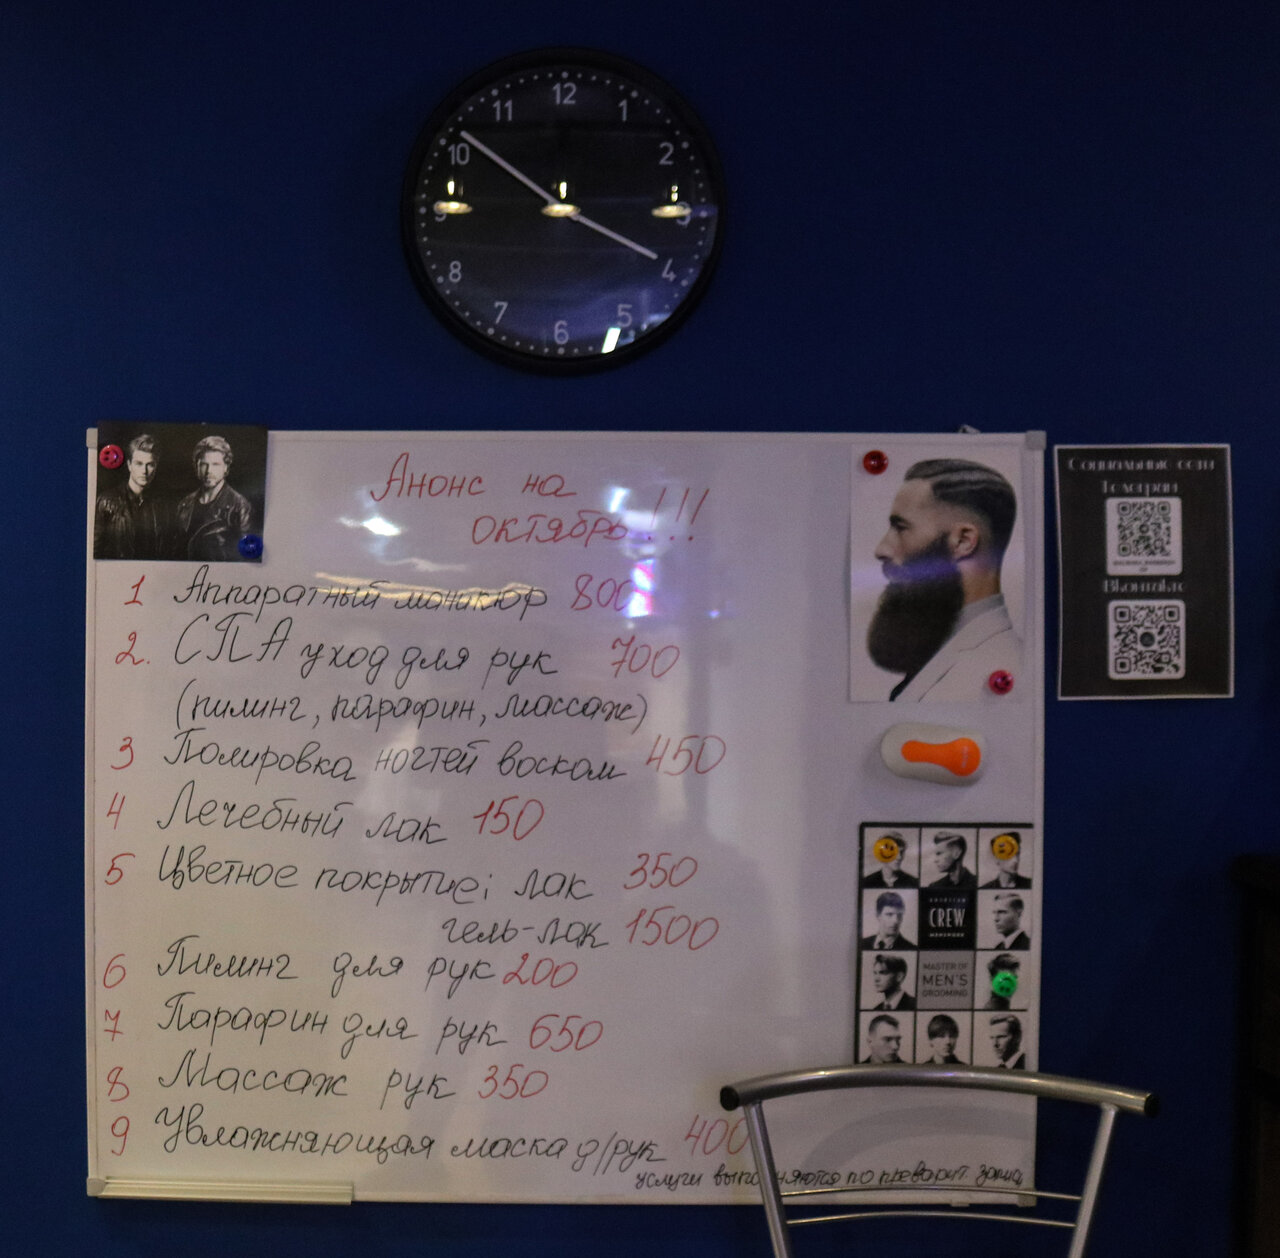 12
11
1
10
2
9
3
8
4
7
5
6
Анонс на
октябрь!!!
1 Аппаратный маникюр 800
2. СПА уход для рук 700
(пилинг, парафин, массаж)
3 Полировка ногтей воском 450
4 Лечебный лак 150
5 Цветное покрытие; лак 350
гель-лак 1500
6 Пилинг для рук 200
7 Парафин для рук 650
8 Массаж рук 350
9 Увлажняющая маска д/рук 400
услуги выполняются по преварит. записи
Социальные сети
Телеграм
Вконтакте
AMERICAN
CREW
MENSWORK
MASTER OF
MEN'S
GROOMING